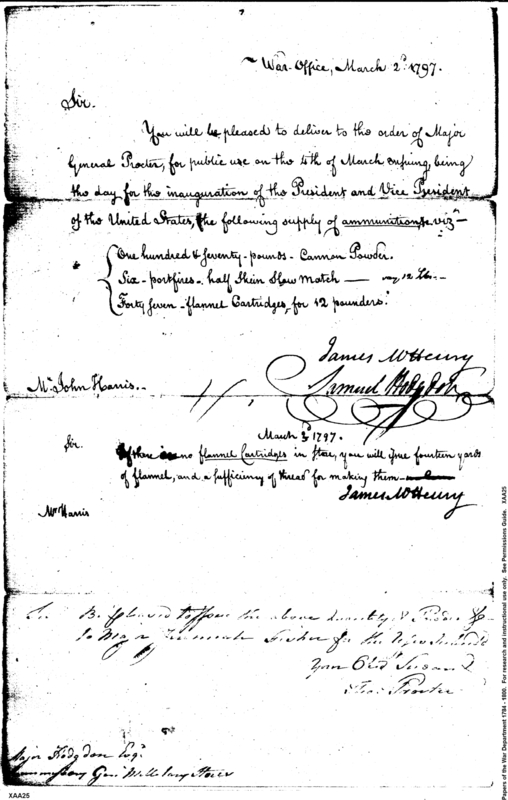 War Office, March 2d. 1797.
Sir.
You will be pleased to deliver to the order of Major
General Procter, for public use on the 4th of March ensuing, being
the day for the inauguration of the President and Vice President
of the United States, the following supply of ammunition, &c. vizt.
One hundred & seventy-pounds - Cannon Powder.
Six - portfires - half skein slow match — say 12 lbs. —
Forty seven - flannel Cartridges, for 12 pounders.
James McHenry
Samuel Hodgdon
Mr. John Harris. -
March 3d 1797.
Sir.
If there are no flannel Cartridges in store, you will issue fourteen yards
of flannel, and a sufficiency of thread for making them -
James McHenry
Mr Harris
Sir Be pleased to the above quantity of Powder &c
to Major Jeremiah Fisher for the Use
Your Obdt. Servant
Thos. Procter
Major Hodgdon Esqr.
Commissary Genl Military Stores
XAA25
Papers of the War Department 1784 - 1800. For research and instructional use only. See Permissions Guide. XAA25